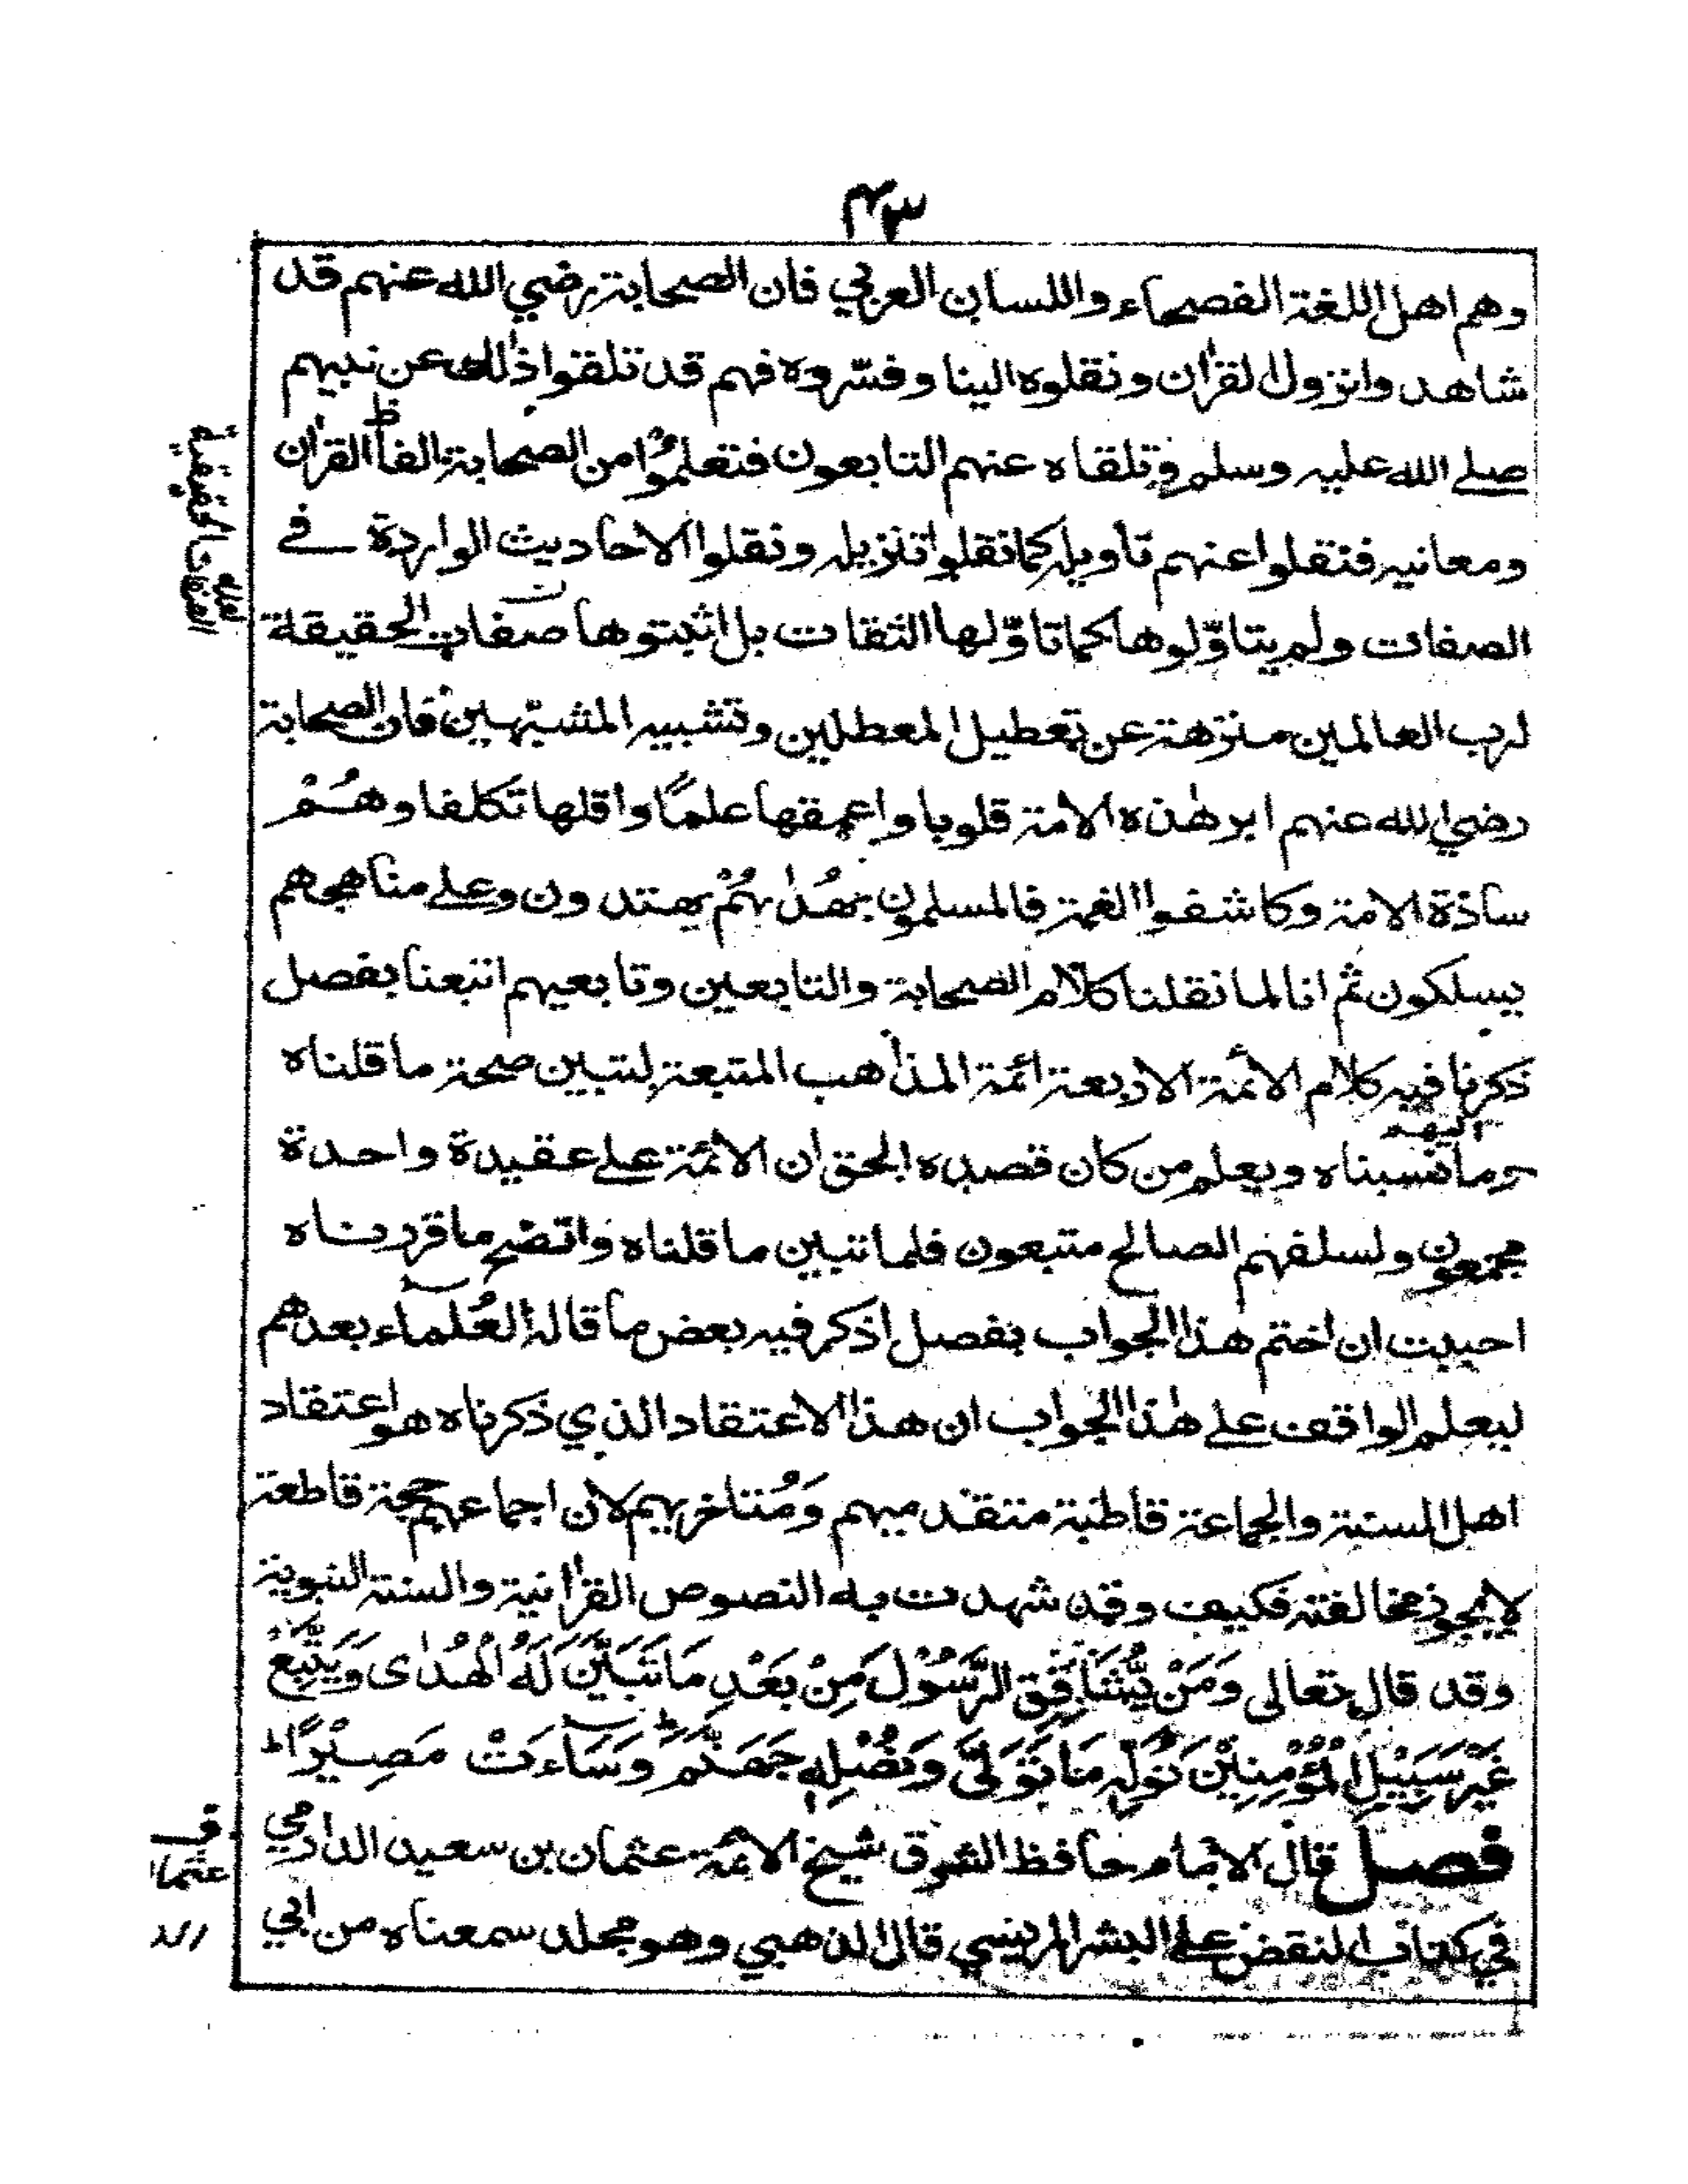 ٤٣
وهم اهل اللغة الفصحاء واللسان العربي فان الصحابة رضي الله عنهم قد
شاهدوا نزول القرأن ونقلوه الينا وفسّروه فهم قد تلقوا ذٰلك عن نبيهم
صلے الله عليه وسلم وتلقاه عنهم التابعون فتعلموا من الصحابة الفاظ القرأن
ومعانيه فنقلوا عنهم تأويله كما نقلوا تنزيله ونقلوا الاحاديث الواردة في
الصفات ولم يتاوّلوها كما تاوّلها الثقات بل اثبتوها صفات الحقيقة
لرب العالمين منزهة عن تعطيل المعطلين وتشبيه المشبهين فان الصحابة
رضي الله عنهم ابر هٰذه الامة قلوبا واعمقها علمًا واقلها تكلفا وهُمْ
ساذة الامة وكاشفوا الغمة فالمسلمون بهُدٰىهُمْ يهتدون وعلے مناهجهم
يسلكون ثم انا لما نقلنا كلام الصحابة والتابعين وتابعيهم اتبعنا بفصل
ذكرنا فيه كلام الائمة الاربعة ائمة المذاهب المتبعة لتبين صحة ما قلناه
وما نسبناه اليهم ويعلم من كان قصده الحق ان الائمة علے عقيدة واحدة
مجمعون ولسلفهم الصالح متبعون فلما تبين ما قلناه واتضح ما قررناه
احببت ان اختم هذا الجواب بفصل اذكر فيه بعض ما قاله العُلماء بعدهم
ليعلم الواقف علے هٰذا الجواب ان هذا الاعتقاد الذي ذكرناه هو اعتقاد
اهل السنة والجماعة قاطبة متقدميهم وَمُتاخريهم لان اجماعهم حجة قاطعة
لايجوز مخالفته فكيف وقد شهدت به النصوص القرأنية والسنة النبوية
وقد قال تعالى وَمَنْ يُّشَاقِقِ الرَّسُوْلَ مِنْ بَعْدِ مَا تَبَيَّنَ لَهُ الْهُدٰى وَيَتَّبِعْ
غَيْرَ سَبِيْلِ الْمُؤْمِنِيْنَ نُوَلِّهٖ مَا تَوَلّٰى وَنُصْلِهٖ جَهَنَّمَ وَسَاءَتْ مَصِيْرًا ط
فصل قال الامام حافظ الشرق شيخ الائمة عثمان بن سعيد الدارمي
في كتاب النقض علے البشر المريسي قال الذهبي وهو مجلد سمعناه من ابي